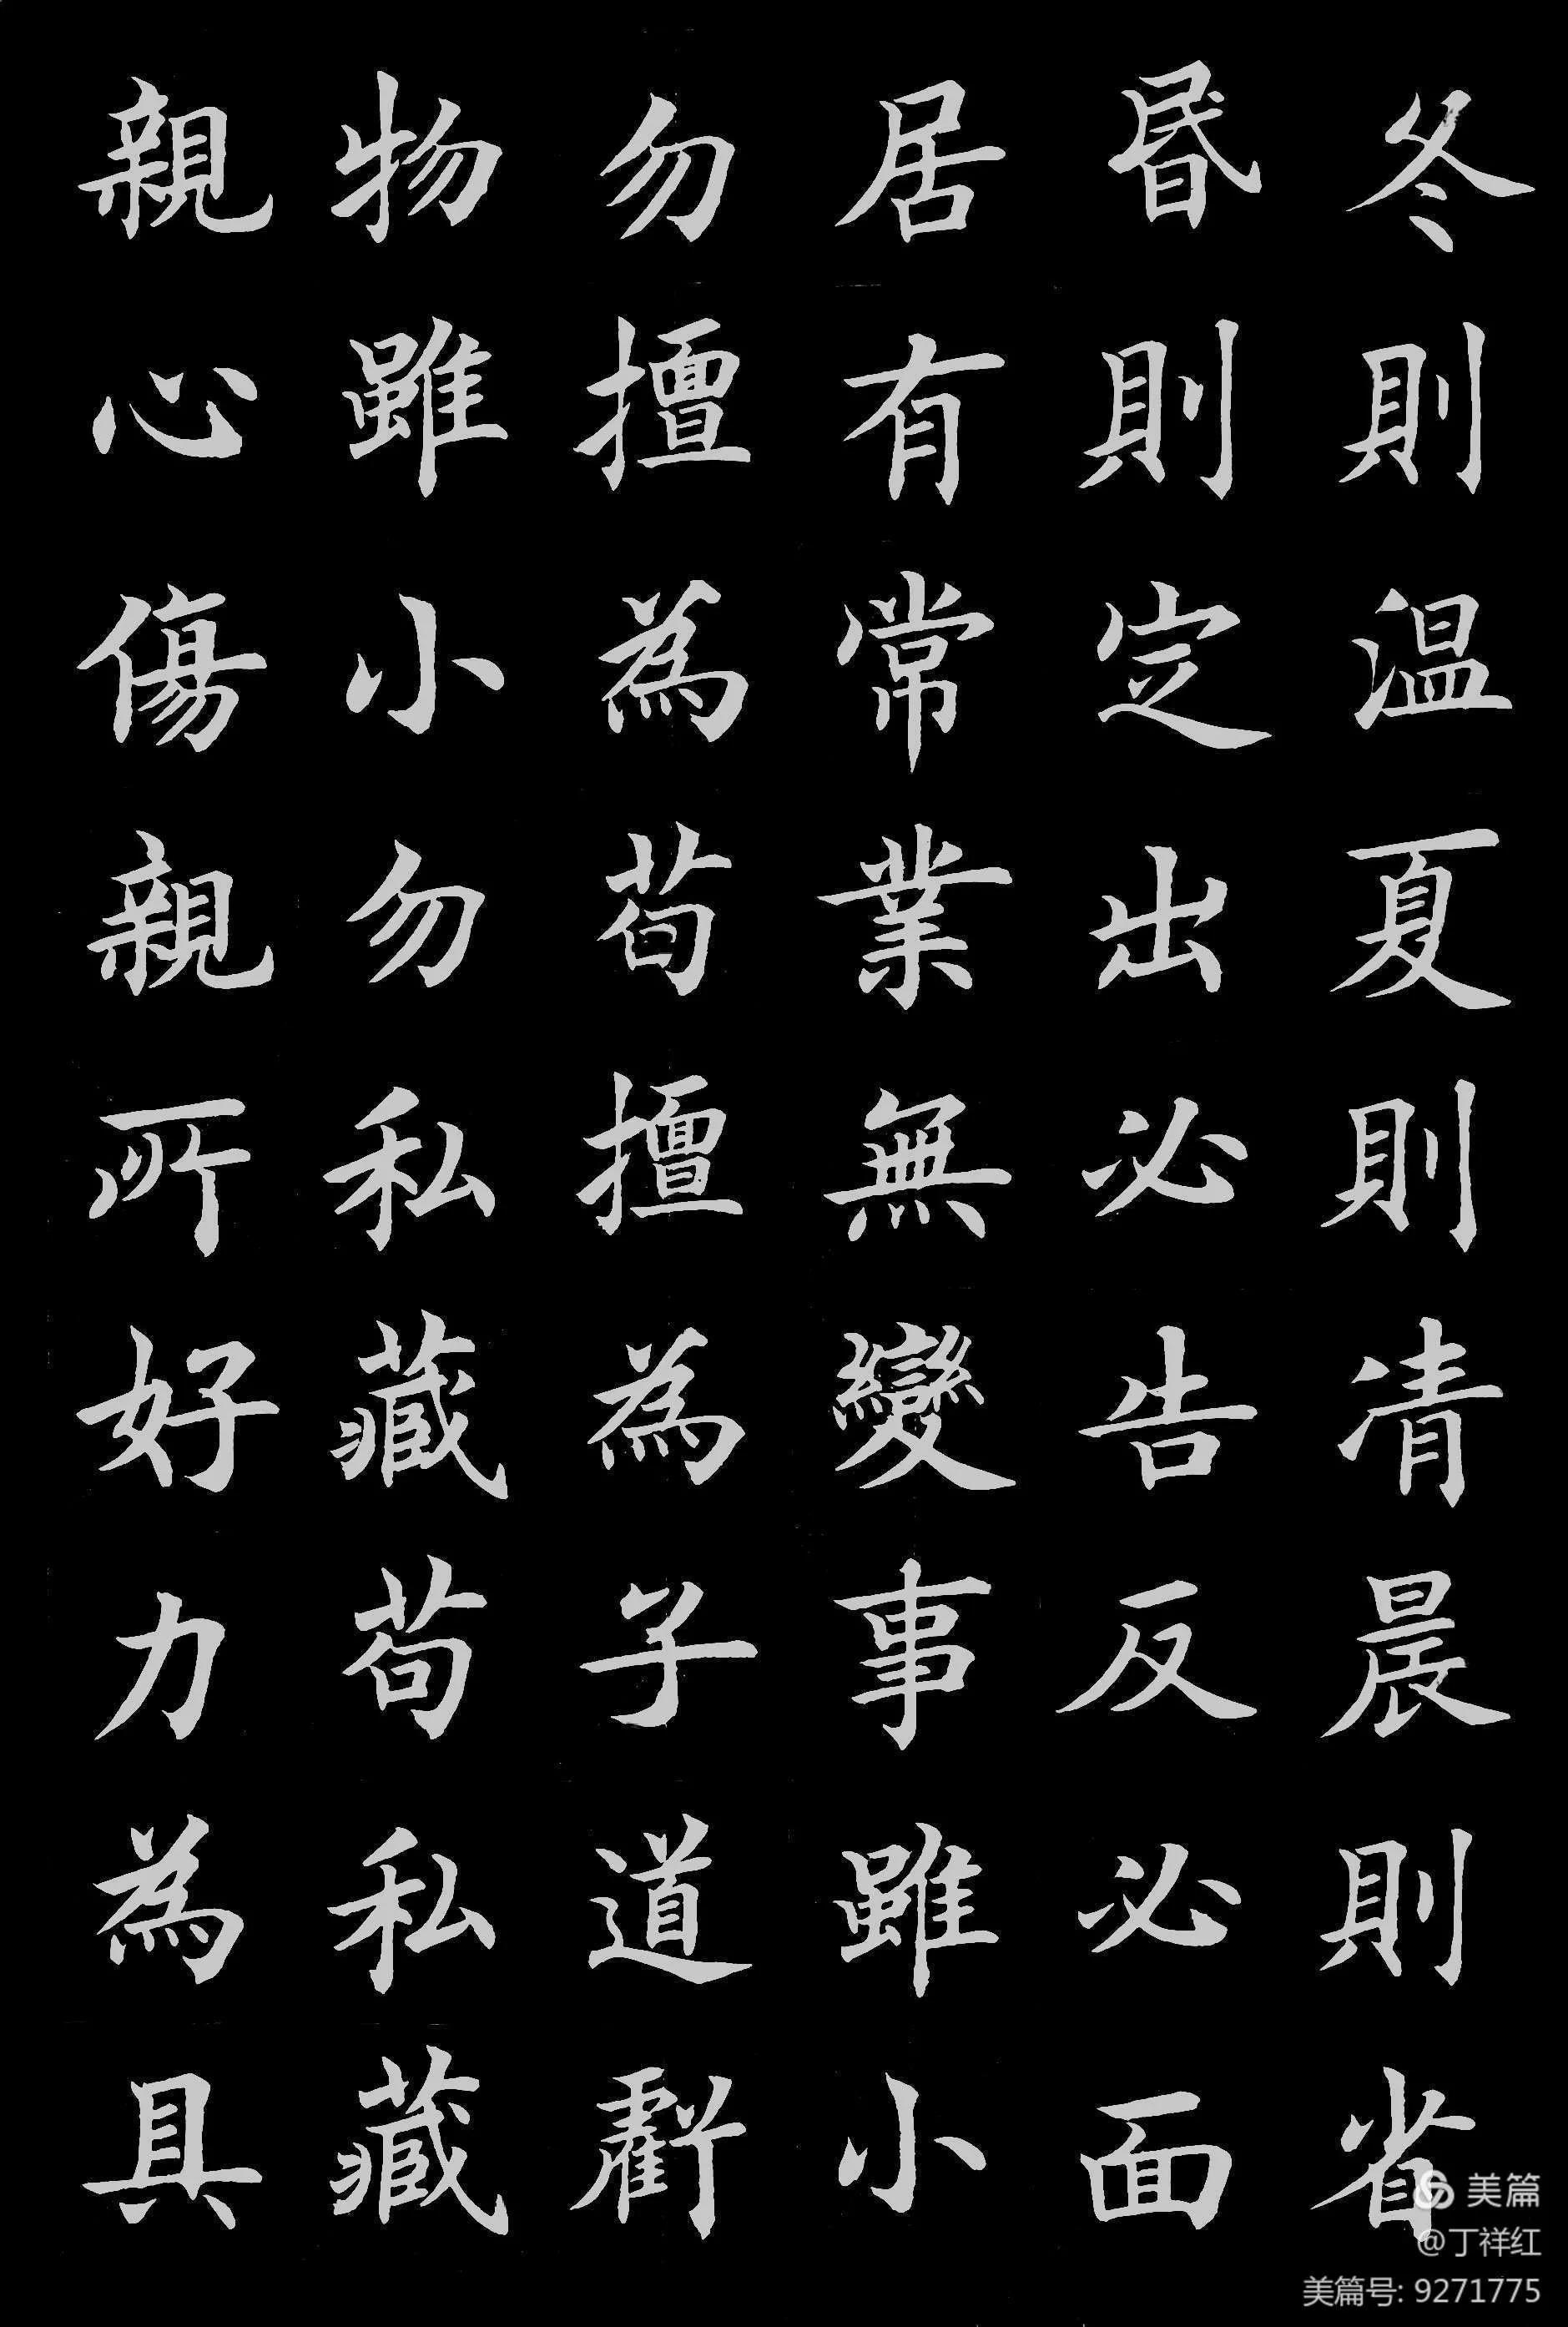 冬則温夏則凊晨則省
昬則定出必告反必面
居有常業無變事雖小
勿擅為苟擅為子道虧
物雖小勿私藏苟私藏
親心傷親所好力為具
美篇
@丁祥红
美篇号: 9271775